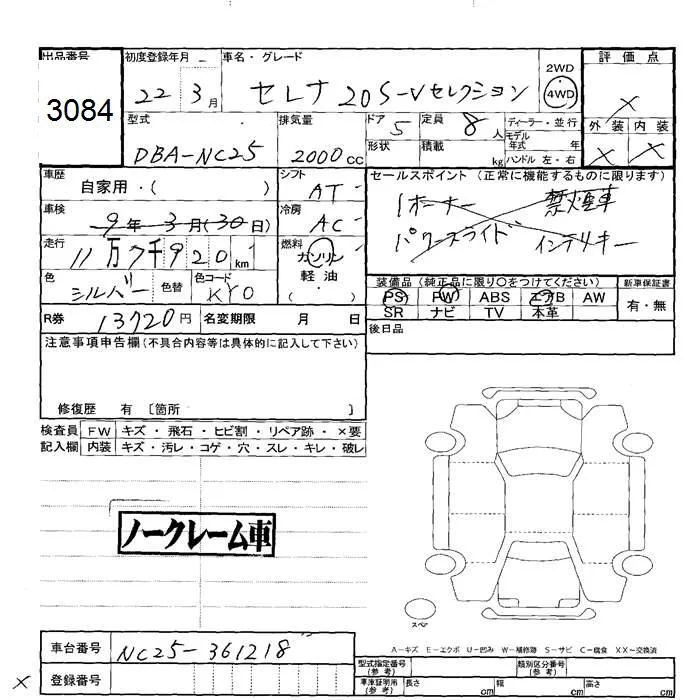 出品番号 初度登録年月 車名・グレード 評価点
3084 22 3月 セレナ 20S-Vセレクション 2WD 4WD ×
型式 排気量 ドア 5 定員 8人 ディーラー・並行 外装 内装
DBA-NC25 2000cc 形状 積載 kg モデル年式 年 ハンドル 左・右 × ×
車歴 自家用・( ) シフト AT セールスポイント (正常に機能するものに限ります)
車検 9年3月(30日) 冷房 AC 1オーナー 禁煙車
走行 11万7千920km 燃料 ガソリン 軽油 ( ) パワースライド インテリキー
色 シルバー 色替 色コード KY0 装備品 (純正品に限り○をつけてください) 新車保証書
PS PW ABS エアB AW 有・無
R券 13720円 名変期限 月 日 SR ナビ TV 本革
注意事項申告欄(不具合内容等は具体的に記入して下さい) 後日品
修復歴 有 〔箇所 〕
検査員 FW キズ・飛石・ヒビ割・リペア跡・×要
記入欄 内装 キズ・汚レ・コゲ・穴・スレ・キレ・破レ
ノークレーム車
スペア
A-キズ E-エクボ U-凹み W-補修跡 S-サビ C-腐食 XX-交換済
車台番号 NC25-361218 型式指定番号 (参考) 類別区分番号 (参考)
× 登録番号 車庫証明用 (参考) 長さ cm 幅 cm 高さ cm